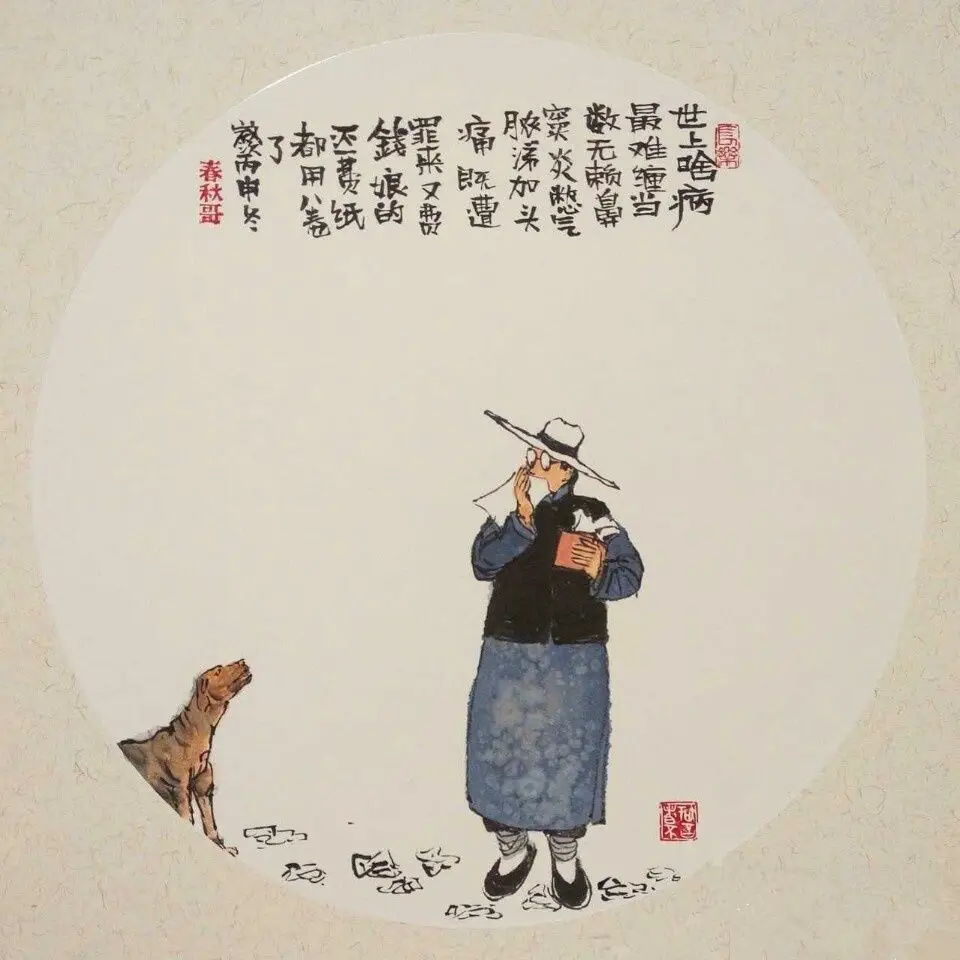 世上啥病
最难缠当
数无赖鼻
窦炎憋气
脓涕加头
痛既遭
罪来又费
錢娘的
还费纸
都用八卷
了
丙申冬
春秋哥